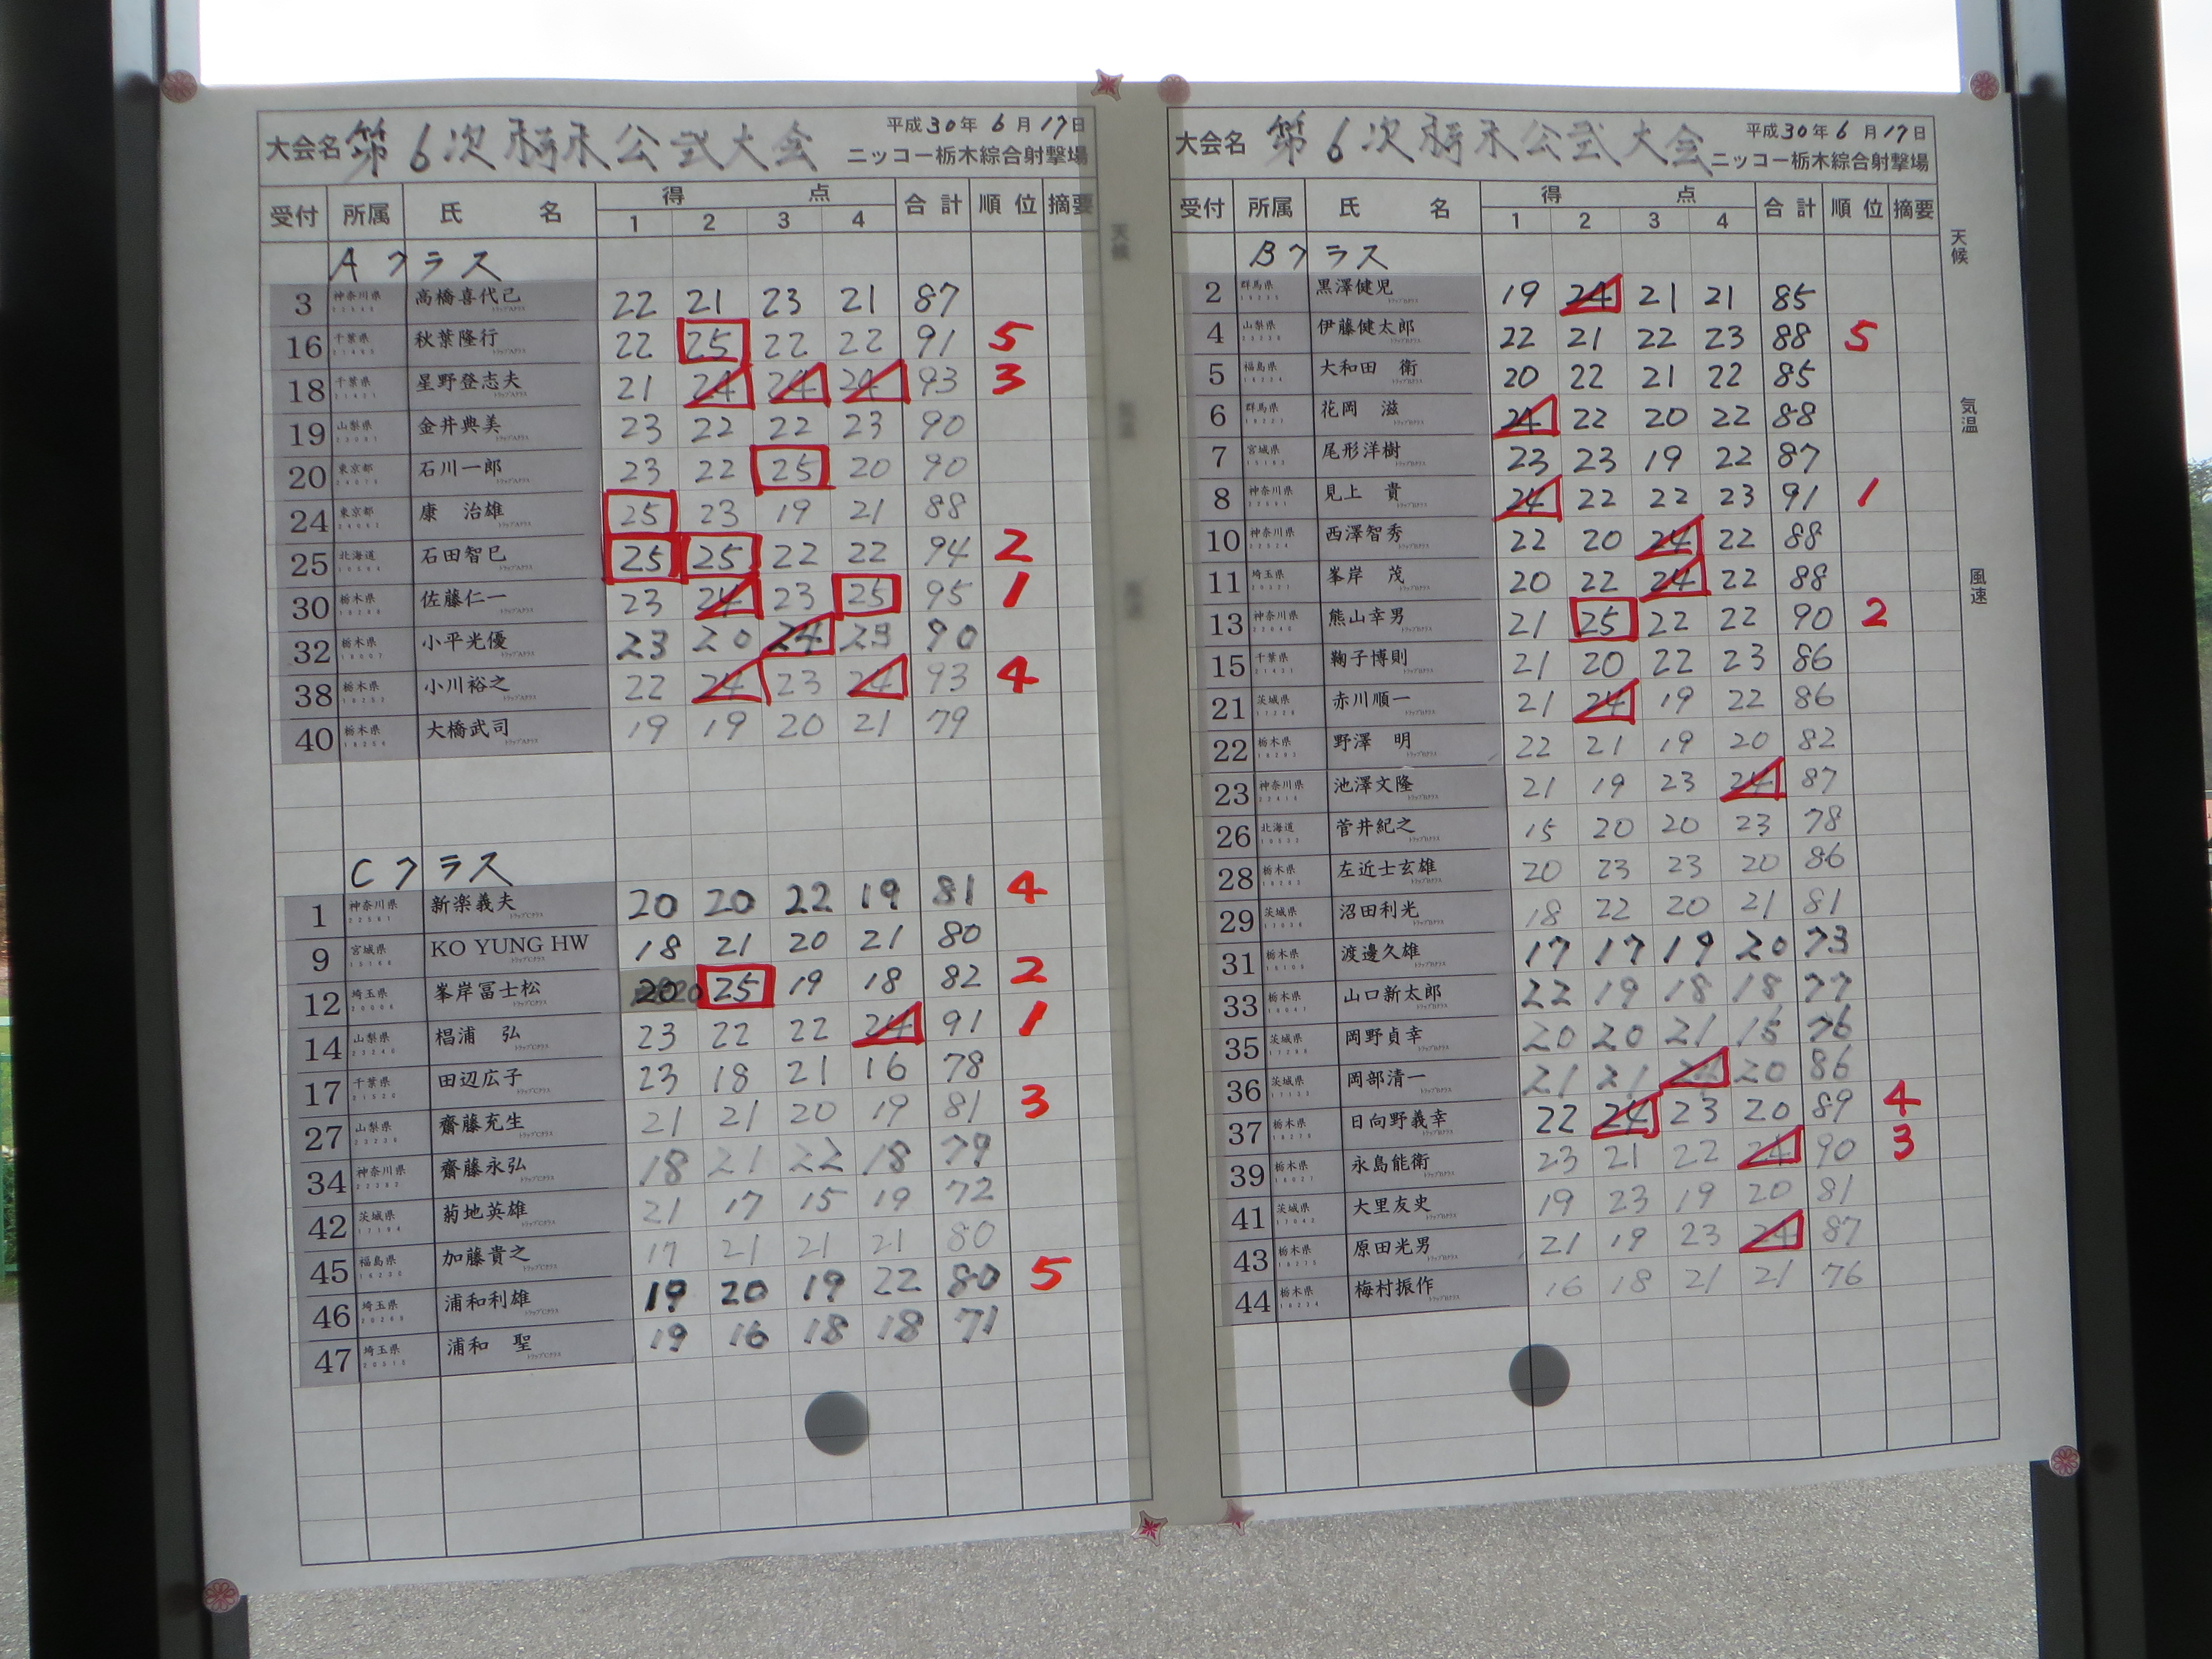 大会名 第6次栃木公式大会 平成30年6月17日
ニッコー栃木綜合射撃場
受付 所属 氏名 得点 合計 順位 摘要
1 2 3 4
Aクラス
3 神奈川県 高橋喜代己 22 21 23 21 87
16 千葉県 秋葉隆行 22 25 22 22 91 5
18 千葉県 星野登志夫 21 24 24 24 93 3
19 山梨県 金井典美 23 22 22 23 90
20 東京都 石川一郎 23 22 25 20 90
24 東京都 康 治雄 25 23 19 21 88
25 北海道 石田智巳 25 25 22 22 94 2
30 栃木県 佐藤仁一 23 24 23 25 95 1
32 栃木県 小平光優 23 20 24 23 90
38 栃木県 小川裕之 22 24 23 24 93 4
40 栃木県 大橋武司 19 19 20 21 79
Cクラス
1 神奈川県 新楽義夫 20 20 22 19 81 4
9 宮城県 KO YUNG HW 18 21 20 21 80
12 埼玉県 峯岸冨士松 20 25 19 18 82 2
14 山梨県 椙浦 弘 23 22 22 24 91 1
17 千葉県 田辺広子 23 18 21 16 78
27 山梨県 齋藤充生 21 21 20 19 81 3
34 神奈川県 齋藤永弘 18 21 22 18 79
42 茨城県 菊地英雄 21 17 15 19 72
45 福島県 加藤貴之 17 21 21 21 80
46 埼玉県 浦和利雄 19 20 19 22 80 5
47 埼玉県 浦和 聖 19 16 18 18 71
天候
大会名 第6次栃木公式大会 平成30年6月17日
ニッコー栃木綜合射撃場
受付 所属 氏名 得点 合計 順位 摘要
1 2 3 4
Bクラス
2 群馬県 黒澤健児 19 24 21 21 85
4 山梨県 伊藤健太郎 22 21 22 23 88 5
5 福島県 大和田 衛 20 22 21 22 85
6 群馬県 花岡 滋 24 22 20 22 88
7 宮城県 尾形洋樹 23 23 19 22 87
8 神奈川県 見上 貴 24 22 22 23 91 1
10 神奈川県 西澤智秀 22 20 24 22 88
11 埼玉県 峯岸 茂 20 22 24 22 88
13 神奈川県 熊山幸男 21 25 22 22 90 2
15 千葉県 鞠子博則 21 20 22 23 86
21 茨城県 赤川順一 21 24 19 22 86
22 栃木県 野澤 明 22 21 19 20 82
23 神奈川県 池澤文隆 21 19 23 24 87
26 北海道 菅井紀之 15 20 20 23 78
28 栃木県 左近士玄雄 20 23 23 20 86
29 茨城県 沼田利光 18 22 20 21 81
31 栃木県 渡邊久雄 17 17 19 20 73
33 栃木県 山口新太郎 22 19 18 18 77
35 茨城県 岡野貞幸 20 20 21 15 76
36 茨城県 岡部清一 21 21 24 20 86
37 栃木県 日向野義幸 22 24 23 20 89 4
39 栃木県 永島能衛 23 21 22 24 90 3
41 茨城県 大里友史 19 23 19 20 81
43 栃木県 原田光男 21 19 23 24 87
44 栃木県 梅村振作 16 18 21 21 76
天候
気温
風速